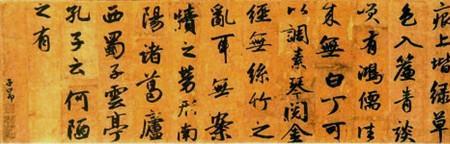 痕上堦綠草
色入簾青談
咲有鴻儒往
来無白丁可
以調素琴閱金
經無絲竹之
亂耳無案
牘之勞形南
陽諸葛廬
西蜀子雲亭
孔子云何陋
之有
子昂